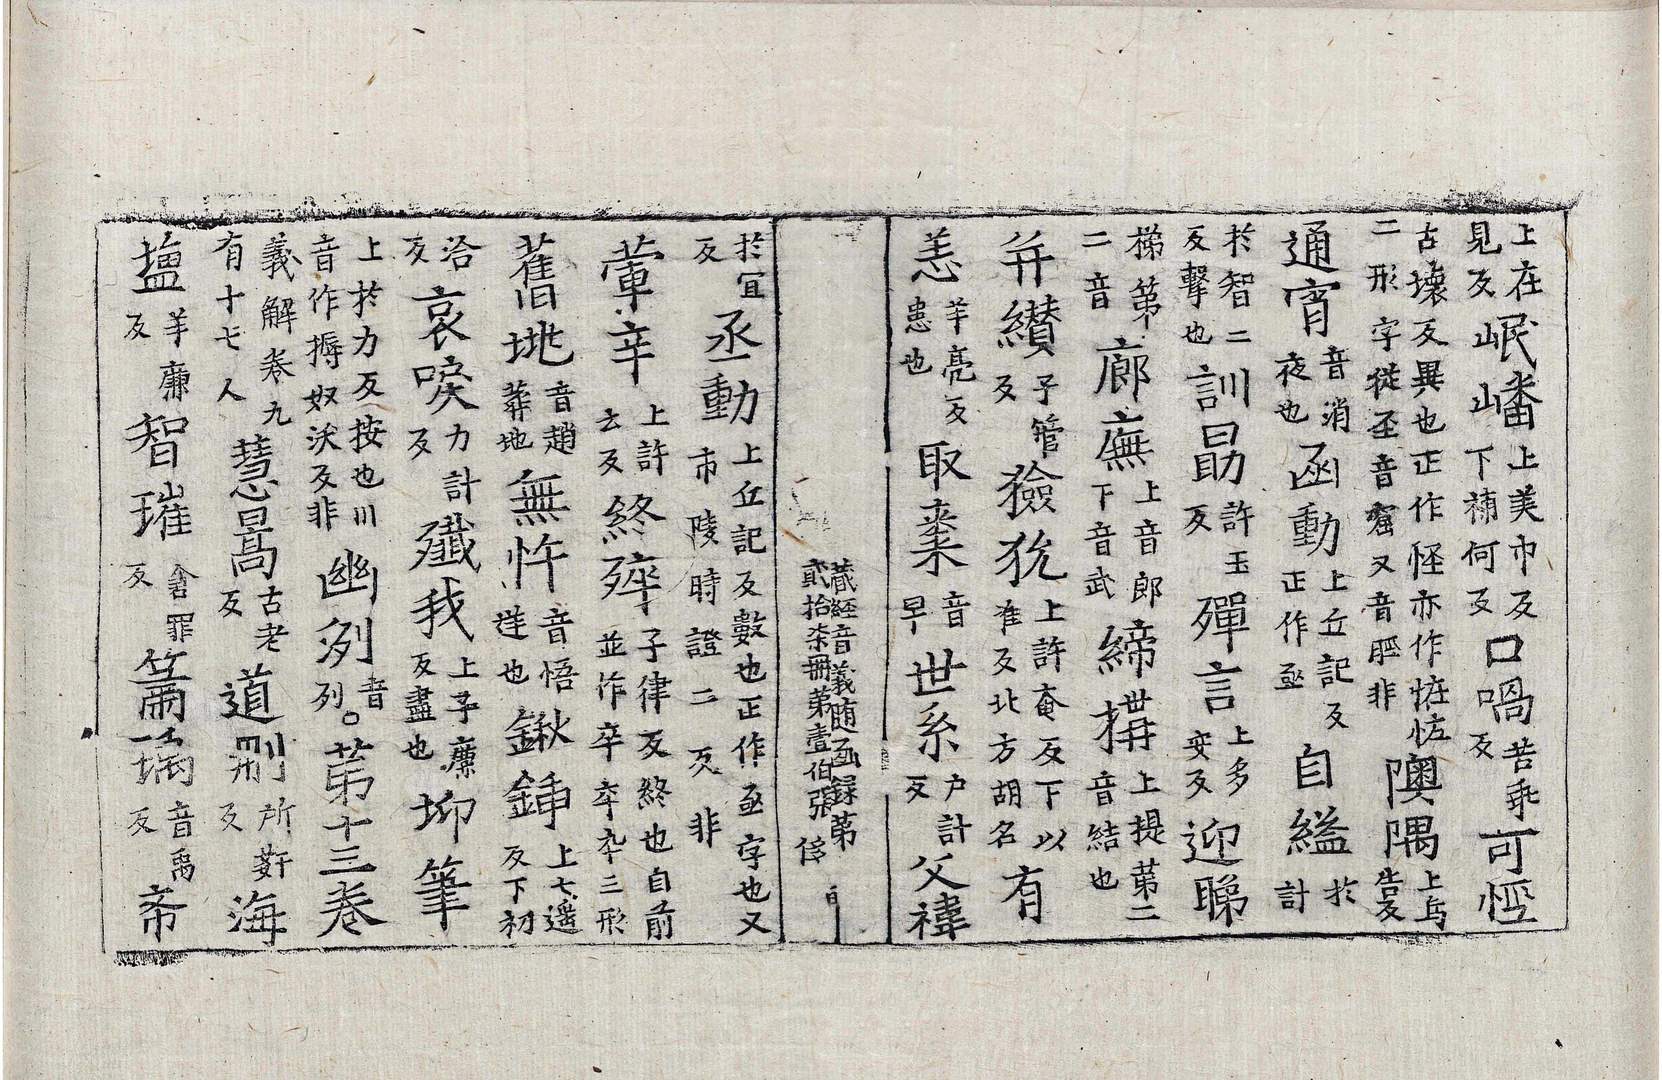 上在見反岷嶓上美巾反下補何反口喎苦乖反可恠
古壞反異也正作怪亦作恠㤪二形字從圣音窟又音脛非隩隅上烏告反
通宵音消夜也函動上丘記反正作亟自縊於計
於智二反擊也訓勗許玉反殫言上多安反迎睇
梯第二音廊廡上音郎下音武締搆上提第二音結也
并纘子管反獫狁上許奄反下以准反北方胡名有
恙羊亮反患也取棗音早世系户計反父禕
藏經音義随函録第貳拾柒冊第壹伯張
於宜反丞動上丘記反數也正作亟字也又市陵時證二反非
葷辛上許云反終殚子律反終也自前並作卒卒卆三形
舊地兆音趙葬地無忤音悟逆也鍬鍤上七遥反下初
洽反哀唳力計反殲我上子廉反盡也抑筆
上於力反按也川音作搙奴沃反非幽列音列。第十三卷
義解卷九有十七人慧暠古老反道刪所姧反海
壏羊廉反智璀舍罪反篇䓺音禹反斋